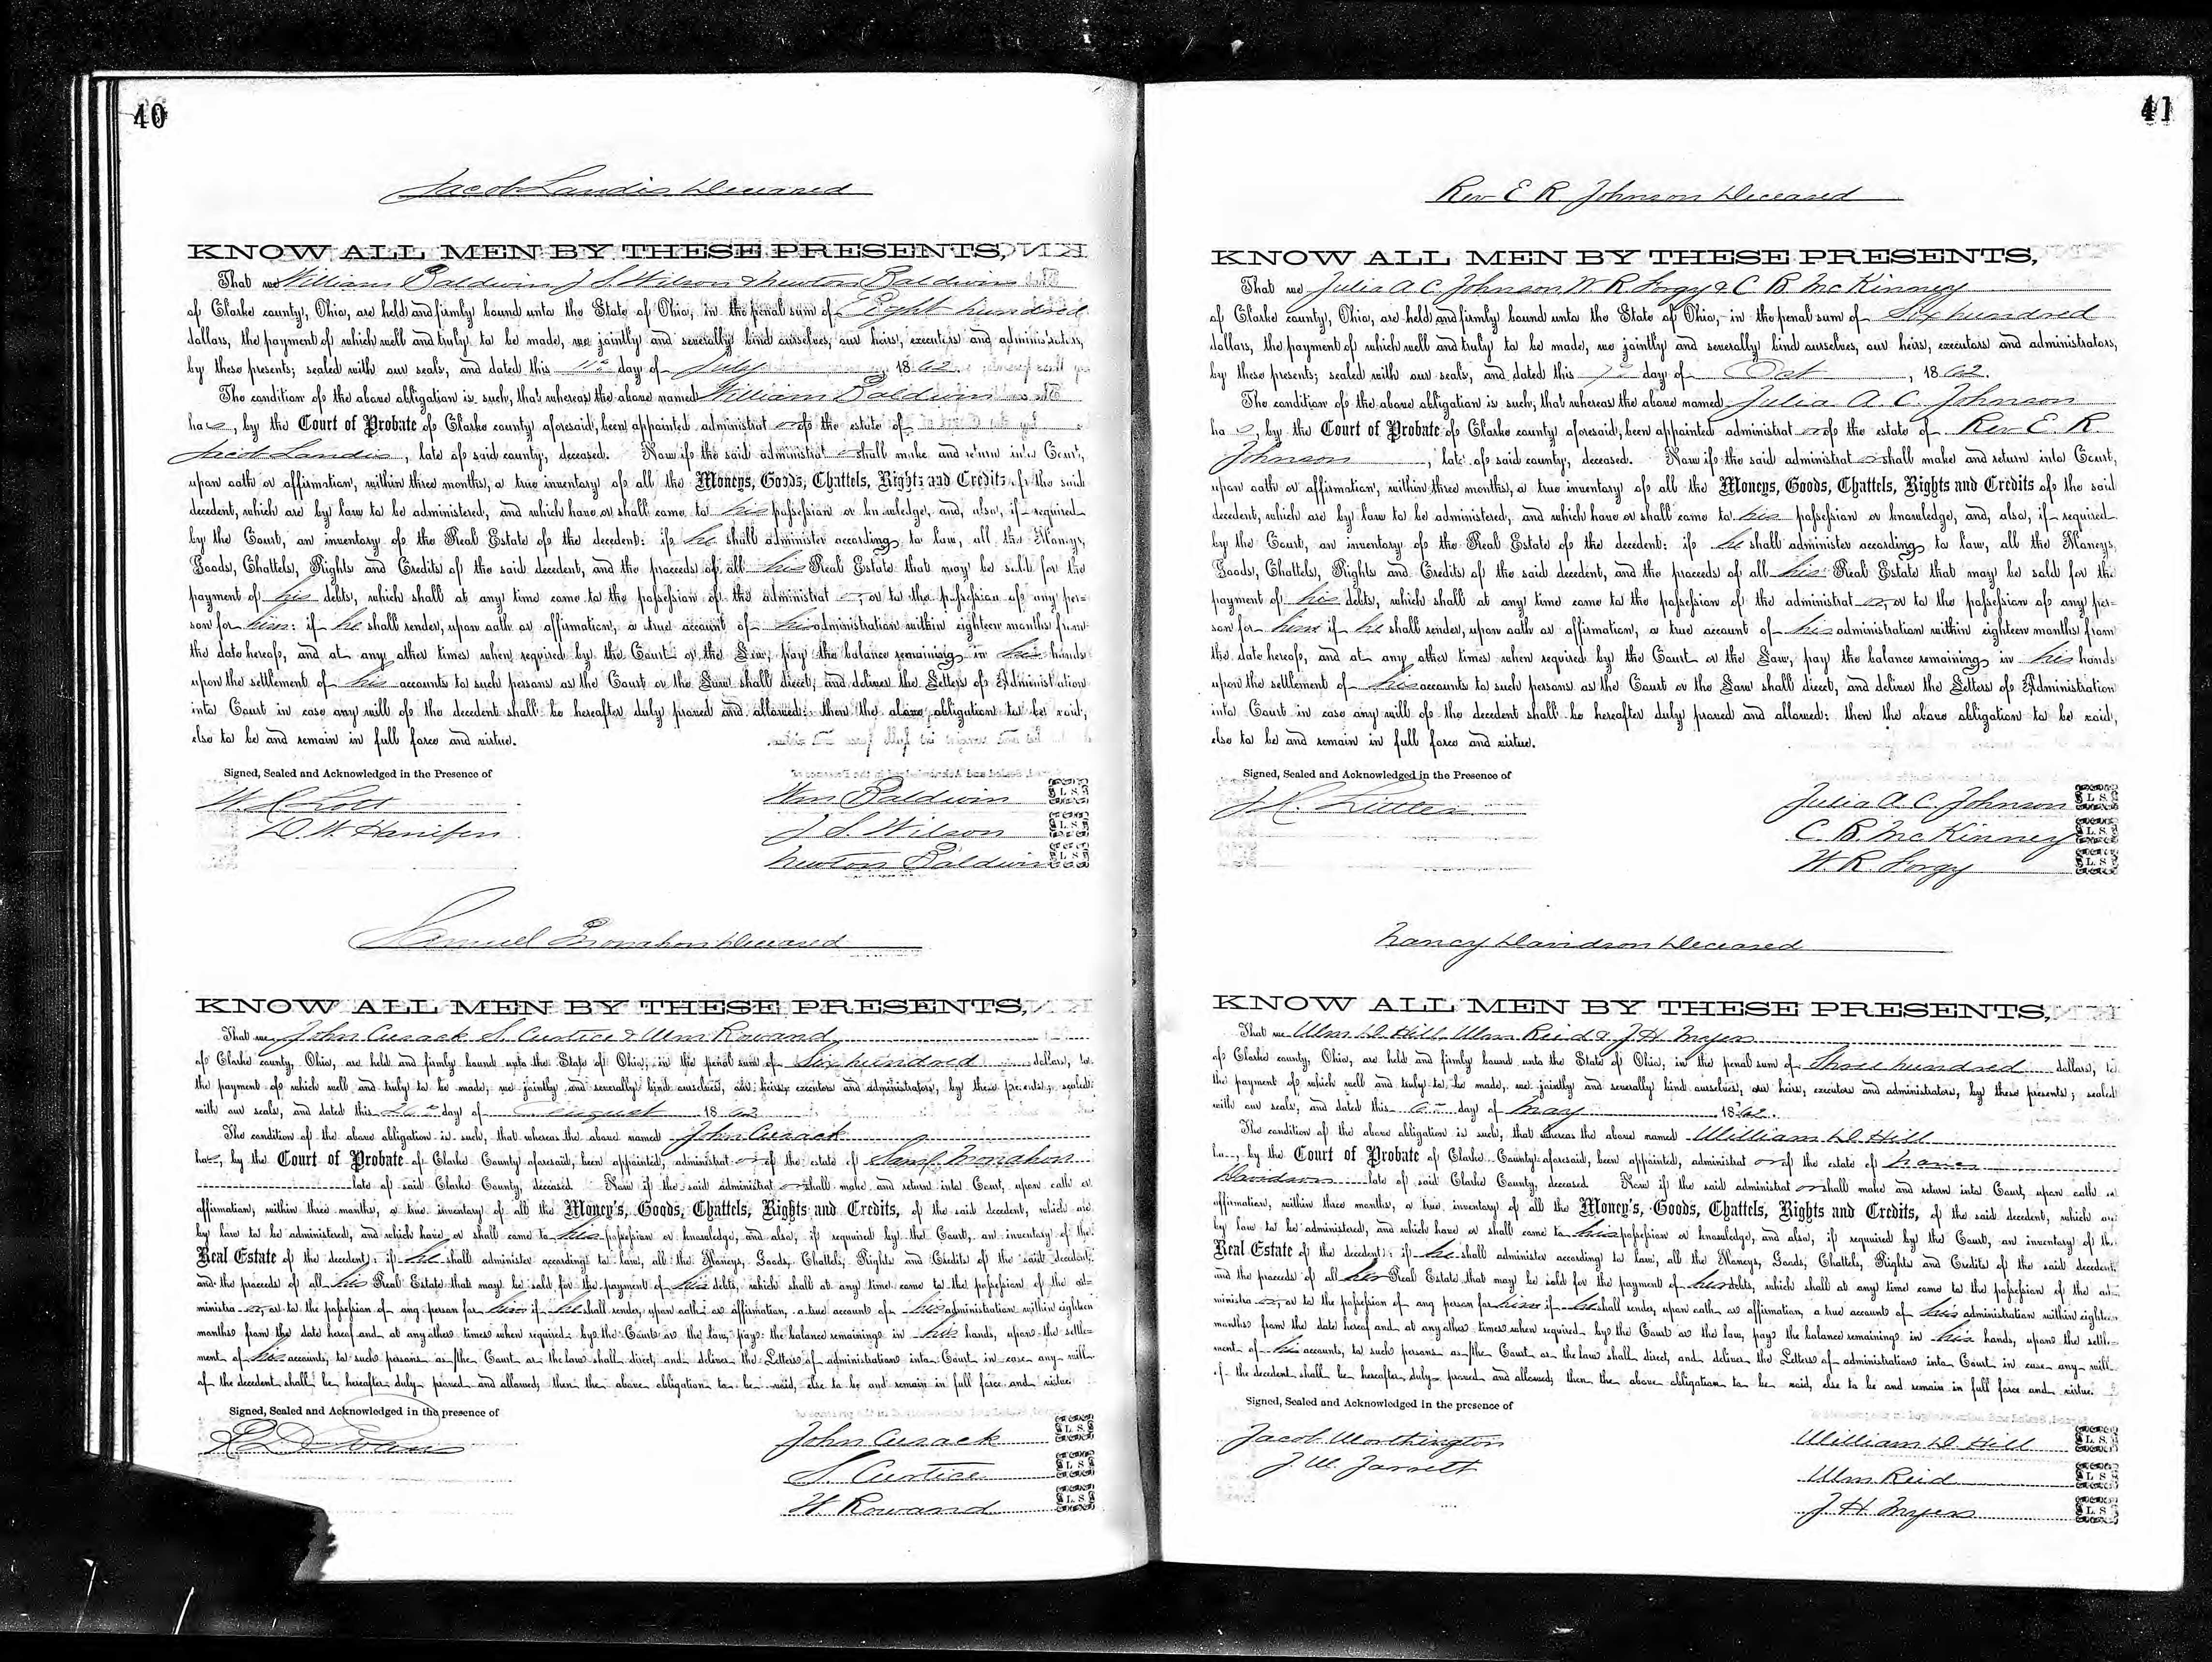 40
Jacob Landis Deceased
KNOW ALL MEN BY THESE PRESENTS,
That we William Baldwin J S Wilson & Newton Baldwin
of Clarke county, Ohio, are held and firmly bound unto the State of Ohio, in the penal sum of Eight hundred
dollars, the payment of which well and truly to be made, we jointly and severally bind ourselves, our heirs, executors and administrators,
by these presents; sealed with our seals, and dated this 11th day of July 1862.
The condition of the above obligation is such, that whereas the above named William Baldwin
has, by the Court of Probate of Clarke county aforesaid, been appointed administrator of the estate of
Jacob Landis, late of said county, deceased. Now if the said administrator shall make and return into Court,
upon oath or affirmation, within three months, a true inventory of all the Moneys, Goods, Chattels, Rights and Credits of the said
decedent, which are by law to be administered, and which have or shall come to his possession or knowledge, and, also, if required
by the Court, an inventory of the Real Estate of the decedent: if he shall administer according to law, all the Moneys,
Goods, Chattels, Rights and Credits of the said decedent, and the proceeds of all his Real Estate that may be sold for the
payment of his debts, which shall at any time come to the possession of the administrator, or to the possession of any per-
son for him: if he shall render, upon oath or affirmation, a true account of his administration within eighteen months from
the date hereof, and at any other times when required by the Court or the Law, pay the balance remaining in his hands
upon the settlement of his accounts to such persons as the Court or the Law shall direct, and deliver the Letters of Administration
into Court in case any will of the decedent shall be hereafter duly proved and allowed: then the above obligation to be void,
else to be and remain in full force and virtue.
Signed, Sealed and Acknowledged in the Presence of
Wm Baldwin L. S.
D. W. Hanifen
J. S. Wilson L. S.
Newton Baldwin L. S.
Samuel Monahon Deceased
KNOW ALL MEN BY THESE PRESENTS,
That we John Cusack S. Curtice & Wm Rowand
of Clarke county, Ohio, are held and firmly bound unto the State of Ohio, in the penal sum of Six hundred dollars, to
the payment of which well and truly to be made, we jointly and severally bind ourselves, our heirs, executors and administrators, by these presents; sealed
with our seals, and dated this day of August 1862
The condition of the above obligation is such, that whereas the above named John Cusack
has, by the Court of Probate of Clarke County aforesaid, been appointed, administrator of the estate of Saml. Monahon
late of said Clarke County, deceased Now if the said administrator shall make and return into Court, upon oath or
affirmation, within three months, a true inventory of all the Money's, Goods, Chattels, Rights and Credits, of the said decedent, which are
by law to be administered, and which have or shall come to his possession or knowledge, and also, if required by the Court, an inventory of the
Real Estate of the decedent: if he shall administer according to law, all the Moneys, Goods, Chattels, Rights and Credits of the said decedent,
and the proceeds of all his Real Estate that may be sold for the payment of his debts, which shall at any time come to the possession of the ad-
ministra or, or to the possession of any person for him if he shall render, upon oath or affirmation, a true accounts of his administration within eighteen
months from the date hereof and at any others times when required by the Court or the law, pay the balance remaining in his hands, upon the settle-
ment of his accounts, to such persons as the Court or the law shall direct, and deliver the Letters of administration into Court in case any will
of the decedent shall be hereafter duly proved and allowed; then the above obligation to be void, else to be and remain in full force and virtue.
Signed, Sealed and Acknowledged in the presence of
John Cusack L. S.
S. Curtice L. S.
W. Rowand L. S.
41
Rev E R Johnson Deceased
KNOW ALL MEN BY THESE PRESENTS,
That we Julia A C. Johnson W R Forgy & C B. McKinney
of Clarke county, Ohio, are held and firmly bound unto the State of Ohio, in the penal sum of Six hundred
dollars, the payment of which well and truly to be made, we jointly and severally bind ourselves, our heirs, executors and administrators,
by these presents; sealed with our seals, and dated this 7th day of Oct, 1862.
The condition of the above obligation is such, that whereas the above named Julia A. C. Johnson
has, by the Court of Probate of Clarke county aforesaid, been appointed administrator of the estate of Rev E. R.
Johnson, late of said county, deceased. Now if the said administrator shall make and return into Court,
upon oath or affirmation, within three months, a true inventory of all the Moneys, Goods, Chattels, Rights and Credits of the said
decedent, which are by law to be administered, and which have or shall come to his possession or knowledge, and, also, if required
by the Court, an inventory of the Real Estate of the decedent: if he shall administer according to law, all the Moneys,
Goods, Chattels, Rights and Credits of the said decedent, and the proceeds of all his Real Estate that may be sold for the
payment of his debts, which shall at any time come to the possession of the administrator, or to the possession of any per-
son for him if he shall render, upon oath or affirmation, a true account of his administration within eighteen months from
the date hereof, and at any other times when required by the Court or the Law, pay the balance remaining in his hands
upon the settlement of his accounts to such persons as the Court or the Law shall direct, and deliver the Letters of Administration
into Court in case any will of the decedent shall be hereafter duly proved and allowed: then the above obligation to be void,
else to be and remain in full force and virtue.
Signed, Sealed and Acknowledged in the Presence of
Julia A. C. Johnson L. S.
C. B. McKinney L. S.
W. R. Forgy L. S.
Nancy Davidson Deceased
KNOW ALL MEN BY THESE PRESENTS,
That we Wm D. Hill, Wm Reid & J H Myers
of Clarke county, Ohio, are held and firmly bound unto the State of Ohio, in the penal sum of Three hundred dollars, to
the payment of which well and truly to be made, we jointly and severally bind ourselves, our heirs, executors and administrators, by these presents; sealed
with our seals, and dated this 6th day of May 1862.
The condition of the above obligation is such, that whereas the above named William D Hill
ha , by the Court of Probate of Clarke County aforesaid, been appointed, administrator of the estate of
Davidson late of said Clarke County, deceased Now if the said administrator shall make and return into Court, upon oath or
affirmation, within three months, a true inventory of all the Money's, Goods, Chattels, Rights and Credits, of the said decedent, which are
by law to be administered, and which have or shall come to his possession or knowledge, and also, if required by the Court, an inventory of the
Real Estate of the decedent: if he shall administer according to law, all the Moneys, Goods, Chattels, Rights and Credits of the said decedent,
and the proceeds of all her Real Estate that may be sold for the payment of her debts, which shall at any time come to the possession of the ad-
ministra or, or to the possession of any person for him if he shall render, upon oath or affirmation, a true accounts of his administration within eighteen
months from the date hereof and at any others times when required by the Court or the law, pay the balance remaining in his hands, upon the settle-
ment of his accounts, to such persons as the Court or the law shall direct, and deliver the Letters of administration into Court in case any will
of the decedent shall be hereafter duly proved and allowed; then the above obligation to be void, else to be and remain in full force and virtue.
Signed, Sealed and Acknowledged in the presence of
Jacob Worthington
William D. Hill L. S.
J. W. Jarrett
Wm Reid L. S.
J. H. Myers L. S.